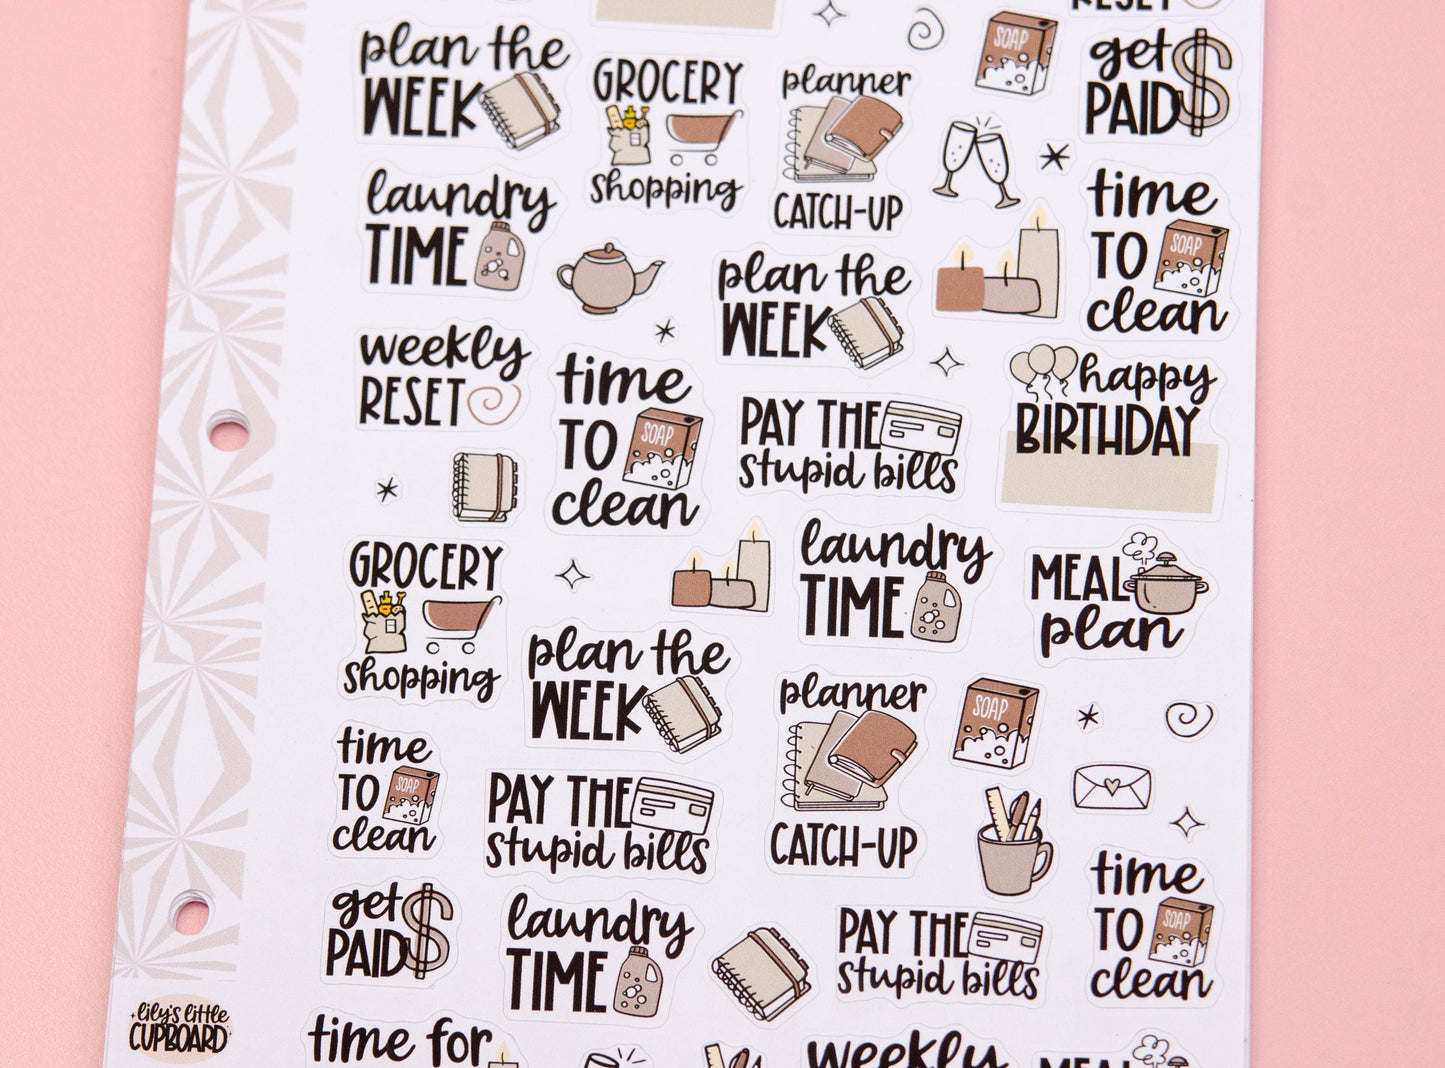 RESET
plan the
WEEK
GROCERY
shopping
planner
CATCH-UP
SOAP
get
PAID
laundry
TIME
time
TO
SOAP
clean
plan the
WEEK
weekly
RESET
time
TO
SOAP
clean
PAY THE
stupid bills
happy
BIRTHDAY
GROCERY
shopping
laundry
TIME
MEAL
plan
plan the
WEEK
planner
CATCH-UP
SOAP
time
TO
SOAP
clean
PAY THE
stupid bills
time
TO
SOAP
clean
get
PAID
laundry
TIME
PAY THE
stupid bills
lily's little
CUPBOARD
time for
weekly
MEAL